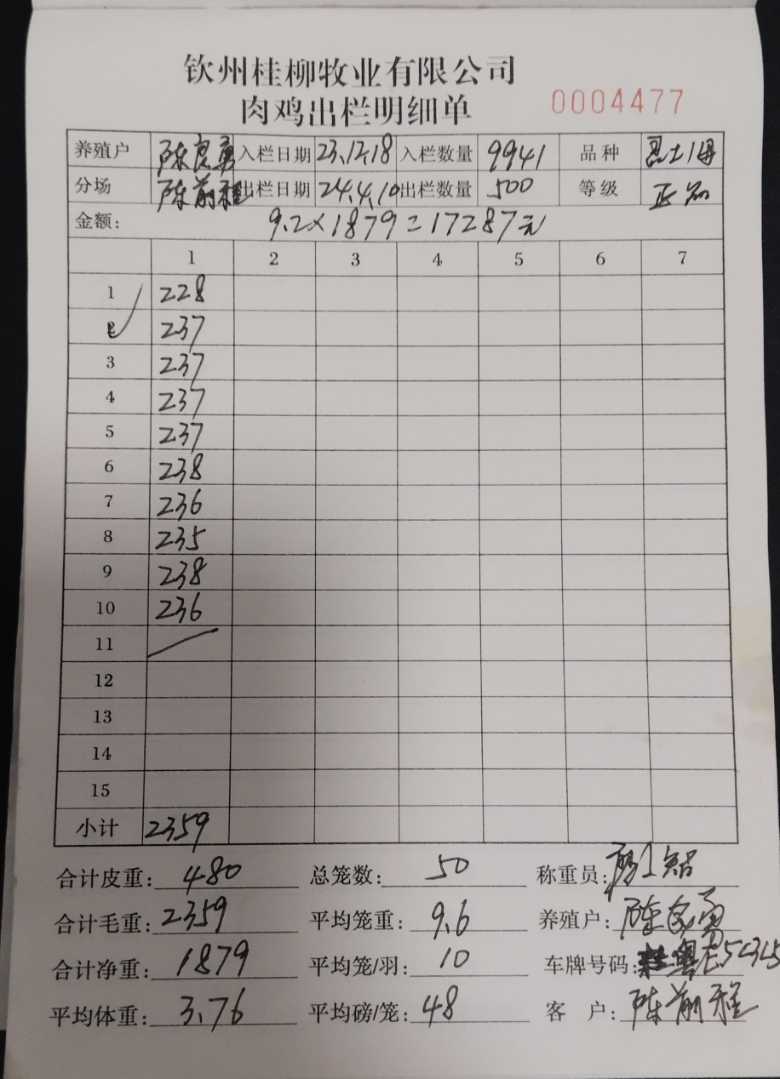 钦州桂柳牧业有限公司
肉鸡出栏明细单 0004477
养殖户 陈良勇 入栏日期 23.12.18 入栏数量 9941 品种
分场 陈前程 出栏日期 24.4.10 出栏数量 500 等级 正
金额: 9.2×1879=17287元
1 2 3 4 5 6 7
1 228
2 237
3 237
4 237
5 237
6 238
7 236
8 235
9 238
10 236
11
12
13
14
15
小计 2359
合计皮重: 480 总笼数: 50 称重员:
合计毛重: 2359 平均笼重: 9.6 养殖户: 陈良勇
合计净重: 1879 平均笼/羽: 10 车牌号码:
平均体重: 3.76 平均磅/笼: 48 客 户: 陈前程